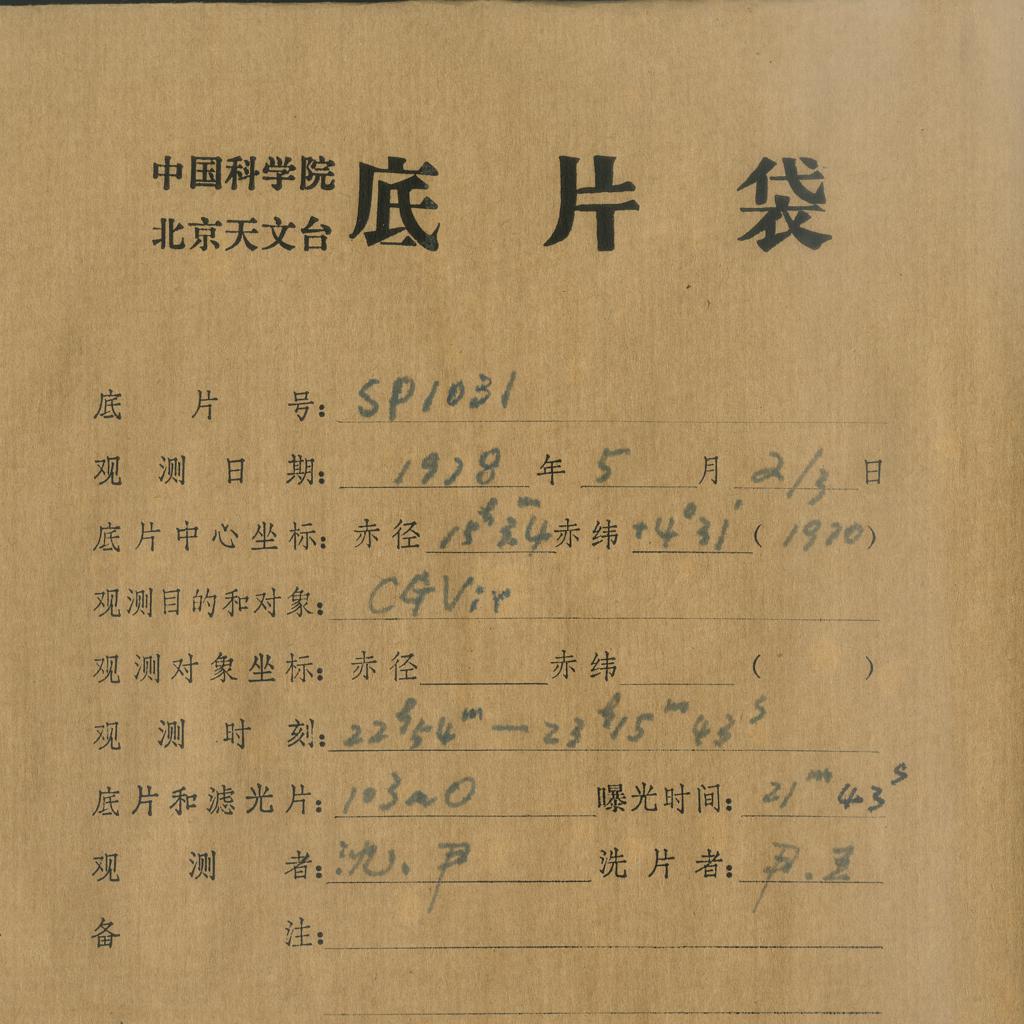 中国科学院
北京天文台
底片袋
底片号：SP1031
观测日期：1978年5月2/3日
底片中心坐标：赤径 15ʰ24ᵐ 赤纬 +4°31′（1970）
观测目的和对象：CGVir
观测对象坐标：赤径 赤纬 （ ）
观测时刻：22ʰ54ᵐ—23ʰ15ᵐ43ˢ
底片和滤光片：103aO 曝光时间：21ᵐ43ˢ
观测者：沈、尹 洗片者：尹、王
备注：